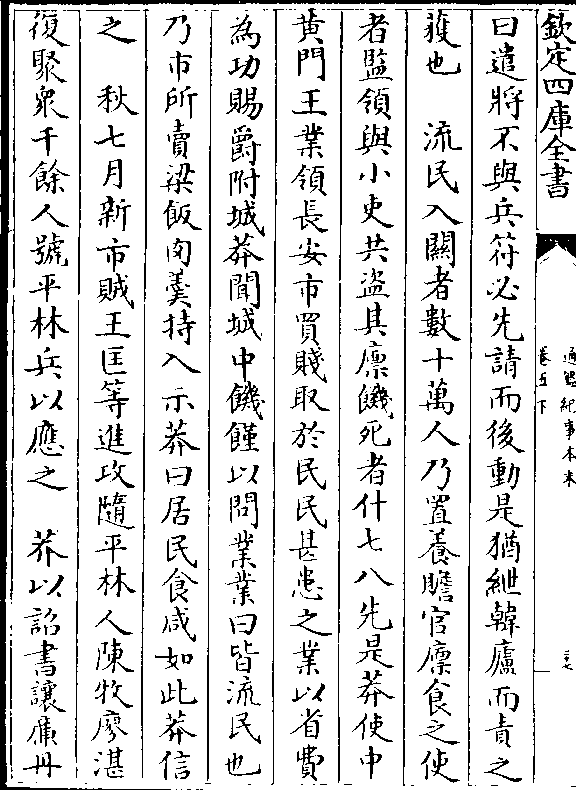 欽定四庫全書
通鑑紀事本末
卷五下
二十七
曰遣將不與兵符必先請而後動是猶紲韓盧而責之
蓛也　流民入關者數十萬人乃置養贍官廩食之使
者監領與小吏共盜其廩饑死者什七八先是莽使中
黄門王業領長安市買賤取於民民甚患之業以省費
為功賜爵附城莽聞城中饑饉以問業業曰皆流民也
乃市所賣粱飯肉羹持入示莽曰居民食咸如此莽信
之　秋七月新市賊王匡等進攻隨平林人陳牧廖湛
復聚衆千餘人號平林兵以應之　莽以詔書讓廉丹